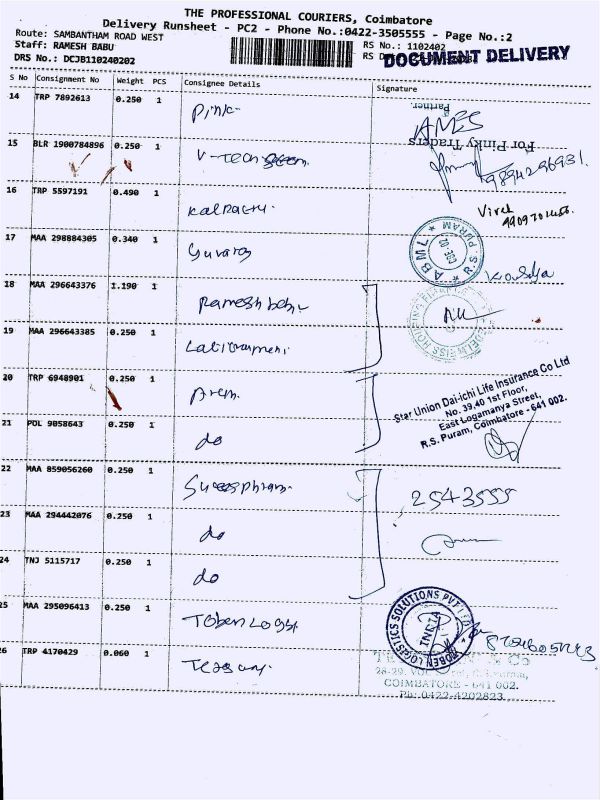 THE PROFESSIONAL COURIERS, Coimbatore
Delivery Runsheet - PC2 - Phone No.:0422-3505555 - Page No.:2
Route: SAMBANTHAM ROAD WEST
Staff: RAMESH BABU
DRS No.: DCJB110240202
RS No.: 1102402
RS D
DOCUMENT DELIVERY
S No Consignment No Weight PCS Consignee Details Signature
14 TRP 7892613 0.250 1 Pink
Partner.
AMES
For Pinky Traders
15 BLR 1900784896 0.250 1 V-Tech
9894296931.
16 TRP 5597191 0.490 1
Viral
17 MAA 298884305 0.340 1 Yuvaraj
ABWJ
R.S. PURAM
18 MAA 296643376 1.190 1 Ramesh babu
EDELWEISS HOUSING FINANCE
19 MAA 296643385 0.250 1
20 TRP 6948901 0.250 1
Star Union Dai-ichi Life Insurance Co Ltd
No. 39,40 1st Floor,
East Logamanya Street,
R.S. Puram, Coimbatore - 641 002.
21 POL 9058643 0.250 1 do
22 MAA 859056260 0.250 1
2543555
23 MAA 294442076 0.250 1 do
24 TNJ 5115717 0.250 1 do
25 MAA 295096413 0.250 1 Toben Logs
ROBEN LOGISTICS SOLUTIONS PVT LTD
26 TRP 4170429 0.060 1
& Co
28-29,
COIMBATORE - 641 002.
Ph: 0422-4202823